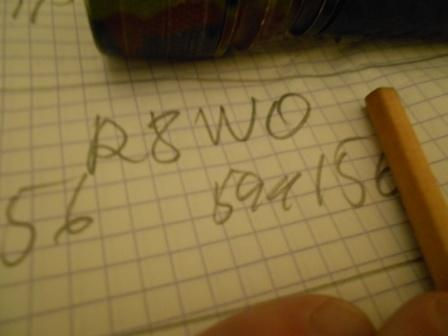 R8WO
56 59n 156